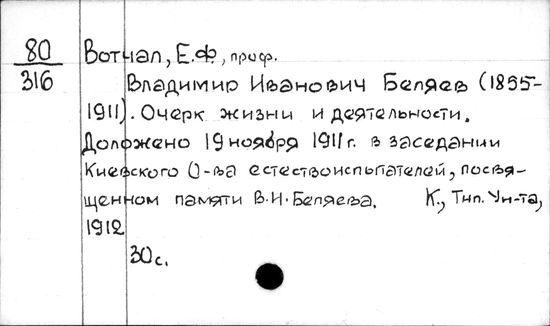 80
316
Вотчал, Е.Ф., проф.
Владимир Иванович Беляев (1855-
1911). Очерк жизни и деятельности.
Доложено 19 ноября 1911г. в заседании
Киевского О-ва естествоиспытателей, посвя-
щенном памяти В.И. Беляева. К., Тип. Ун-та,
1912
30с.